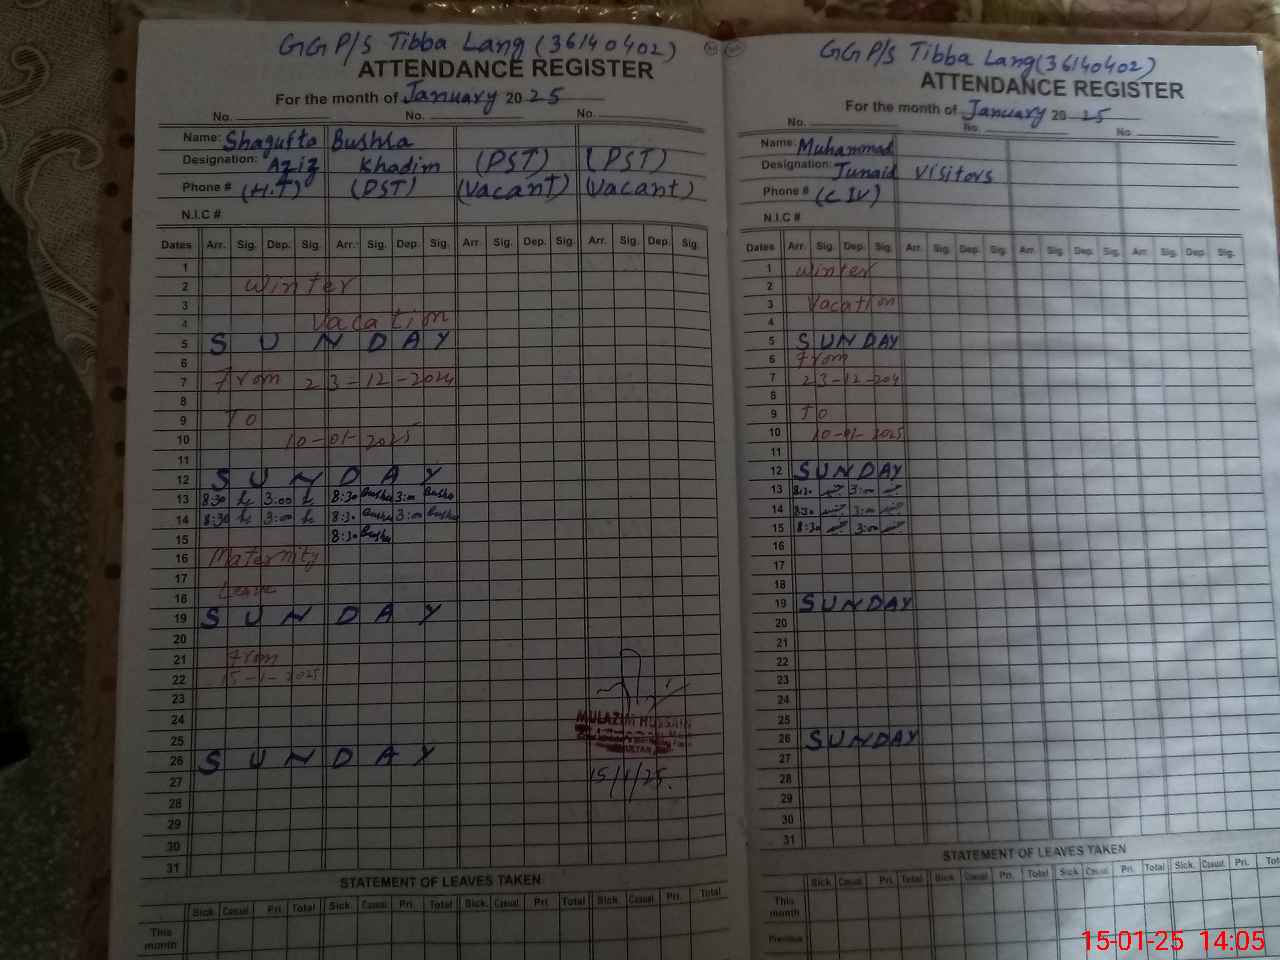 GGP/S Tibba Lang (36140402)
ATTENDANCE REGISTER
For the month of January 2025
No. No. No.
Name: Shagufta Bushra
Designation: Aziz Khadim (PST) (PST)
Phone # (H.T) (PST) (Vacant) (Vacant)
N.I.C #
Dates Arr. Sig. Dep. Sig. Arr. Sig. Dep. Sig. Arr. Sig. Dep. Sig. Arr. Sig. Dep. Sig.
1
2 Winter
3
4 Vacation
5 SUNDAY
6
7 From 23-12-2024
8
9 To
10 10-01-2025
11
12 SUNDAY
13 8:30 3:00 8:30 Bushra 3:00 Bushra
14 8:30 3:00 8:30 Bushra 3:00 Bushra
15 8:30 Bushra
16 Maternity
17
18 Leave
19 SUNDAY
20
21 From
22 15-1-2025
23
24
MULAZIM HUSSAIN
25
26 SUNDAY
27 15/1/25.
28
29
30
31
STATEMENT OF LEAVES TAKEN
Sick. Casual. Pri. Total Sick. Casual. Pri. Total Sick. Casual. Pri. Total Sick. Casual. Pri. Total
This month
GGP/S Tibba Lang (36140402)
ATTENDANCE REGISTER
For the month of January 2025
No. No. No.
Name: Muhammad
Designation: Junaid Visitors
Phone # (C IV)
N.I.C #
Dates Arr. Sig. Dep. Sig. Arr. Sig. Dep. Sig. Arr. Sig. Dep. Sig. Arr. Sig. Dep. Sig.
1 Winter
2
3 Vacation
4
5 SUNDAY
6 From
7 23-12-204
8
9 To
10 10-01-2025
11
12 SUNDAY
13 8:30 3:00
14 8:30 3:00
15 8:30 3:00
16
17
18
19 SUNDAY
20
21
22
23
24
25
26 SUNDAY
27
28
29
30
31
STATEMENT OF LEAVES TAKEN
Sick. Casual. Pri. Total Sick. Casual. Pri. Total Sick. Casual. Pri. Total Sick. Casual. Pri. Tot
This month
Previous
15-01-25 14:05